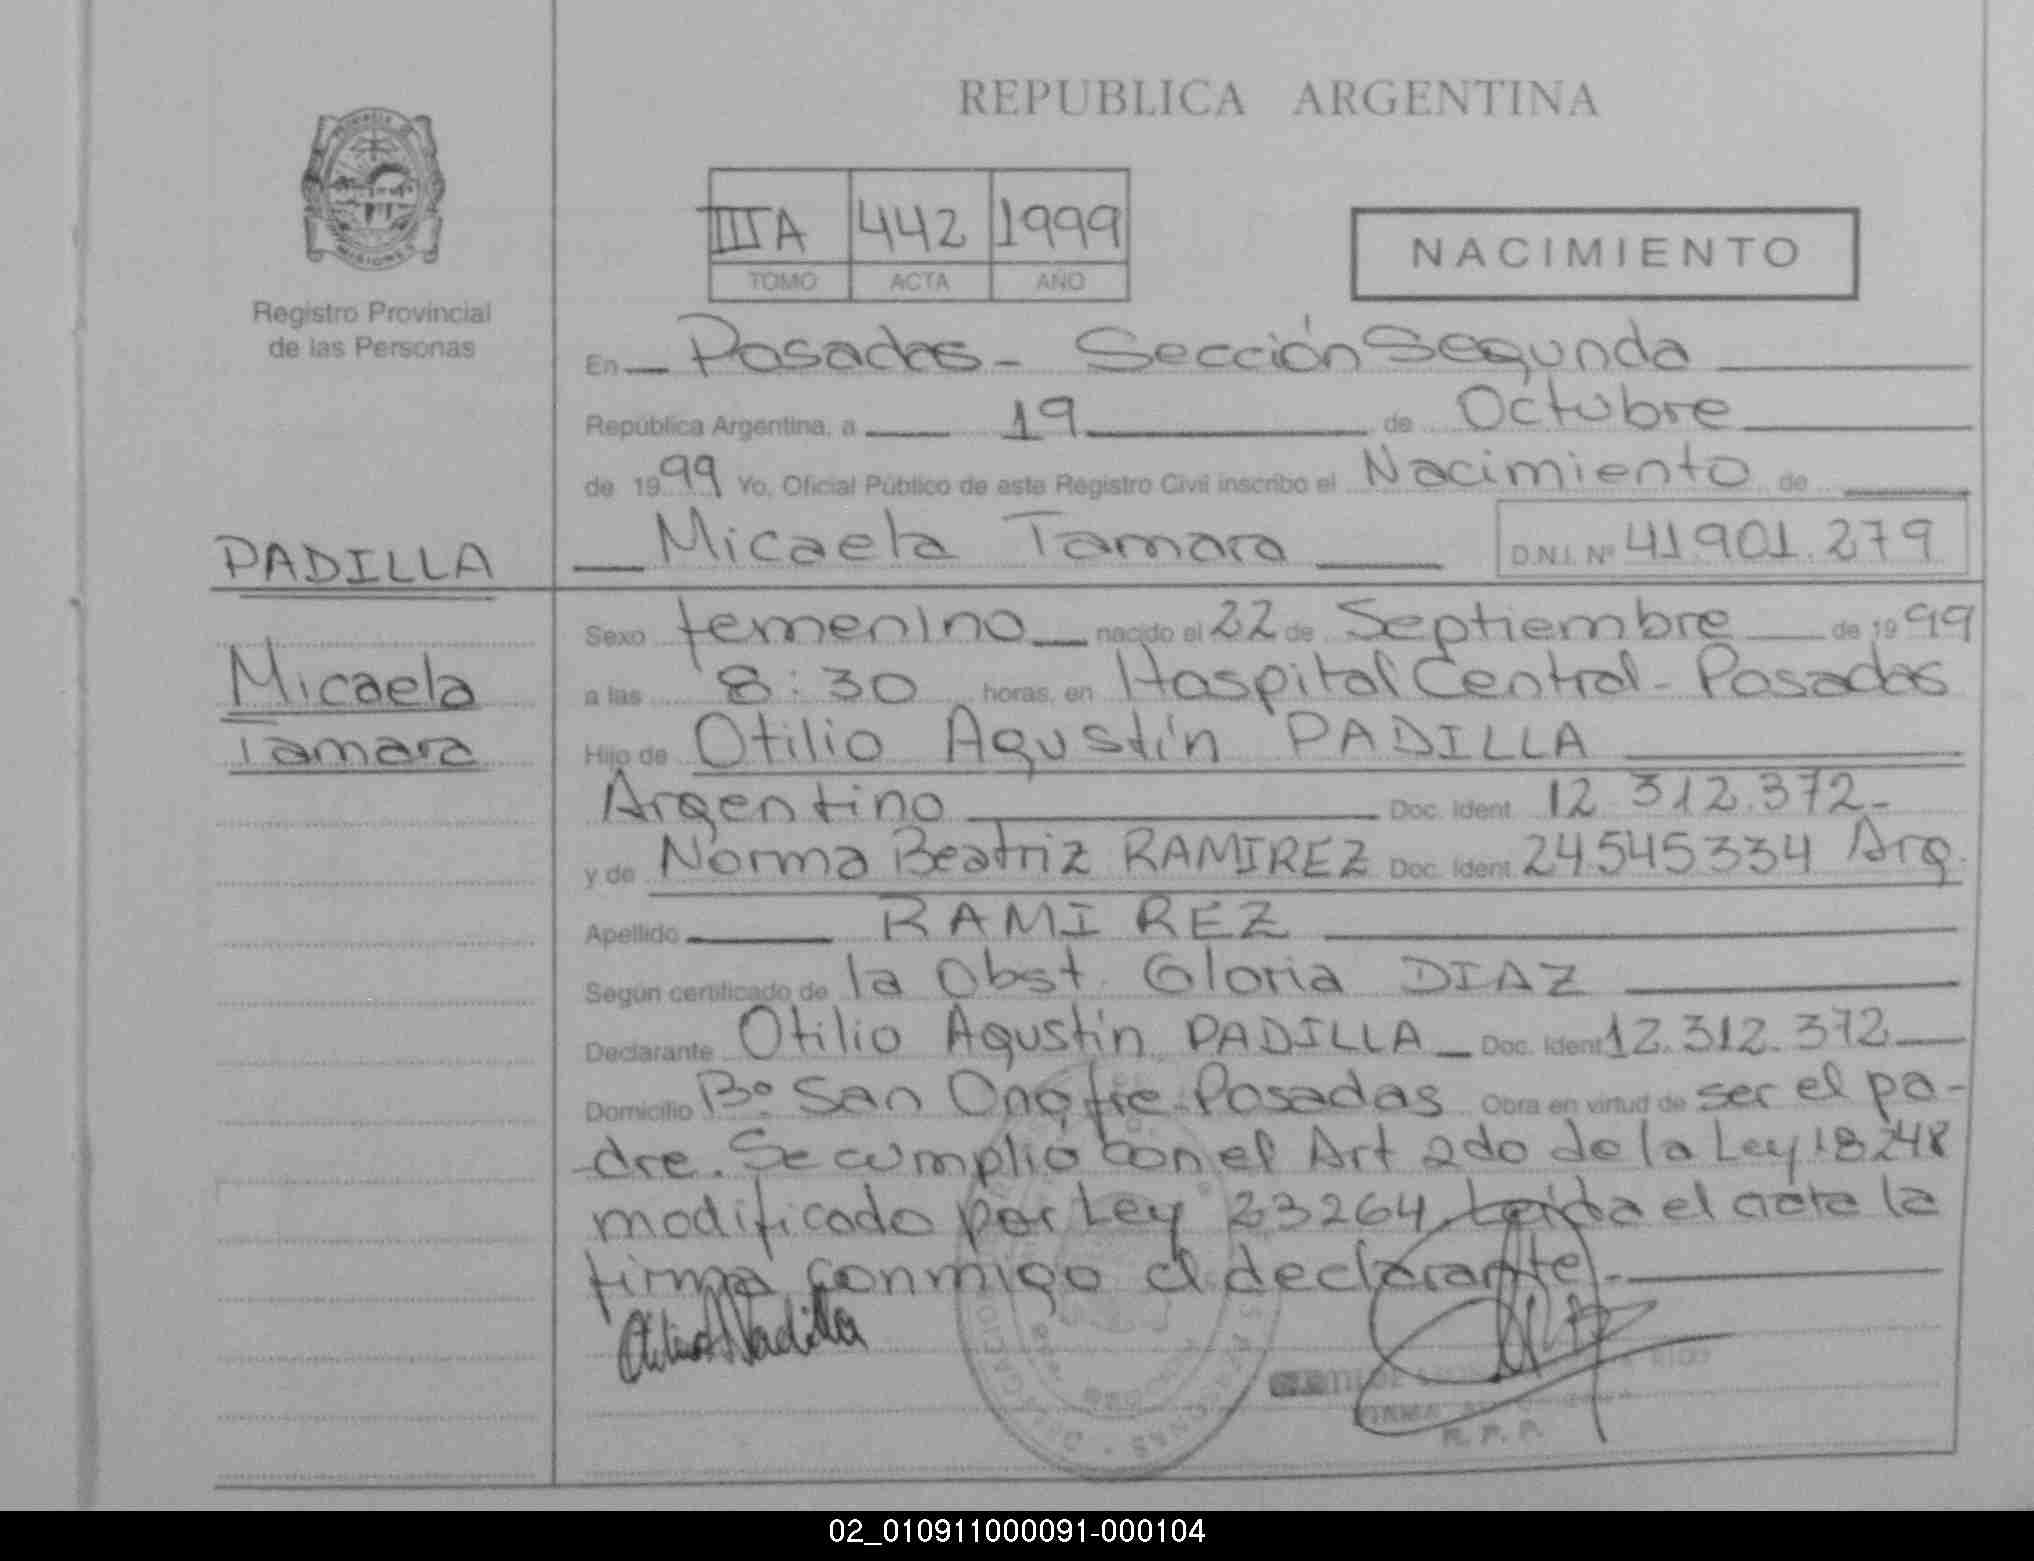 REPUBLICA ARGENTINA
PROVINCIA DE
MISIONES
Registro Provincial
de las Personas
IIIA 442 1999
TOMO ACTA AÑO
NACIMIENTO
En Posadas - Sección Segunda
República Argentina, a 19 de Octubre
de 1999 Yo, Oficial Público de este Registro Civil inscribo el Nacimiento de
Micaela Tamara D.N.I. Nº 41.901.279
PADILLA
Micaela
Tamara
Sexo femenino nacido el 22 de Septiembre de 1999
a las 8:30 horas, en Hospital Central - Posadas
Hijo de Otilio Agustín PADILLA
Argentino Doc. Ident. 12.312.372-
y de Norma Beatriz RAMIREZ Doc. Ident. 24.545334 Arg.
Apellido RAMIREZ
Según certificado de la Obst. Gloria DIAZ
Declarante Otilio Agustín PADILLA Doc. Ident 12.312.372
Domicilio Bº San Onofre - Posadas Obra en virtud de ser el pa-
-dre. Se cumplió con el Art 2do de la Ley 18248
modificado por Ley 23264. Leída el acta la
firma conmigo el declarante.-
Otilio A Padilla
R. P. P.
02_010911000091-000104